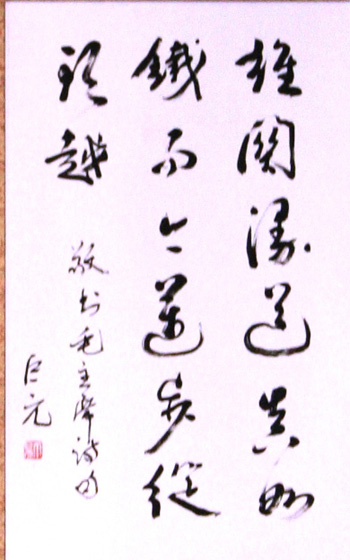 雄關漫道真如
鐵而今邁步從
頭越
敬书毛主席诗句
巨元